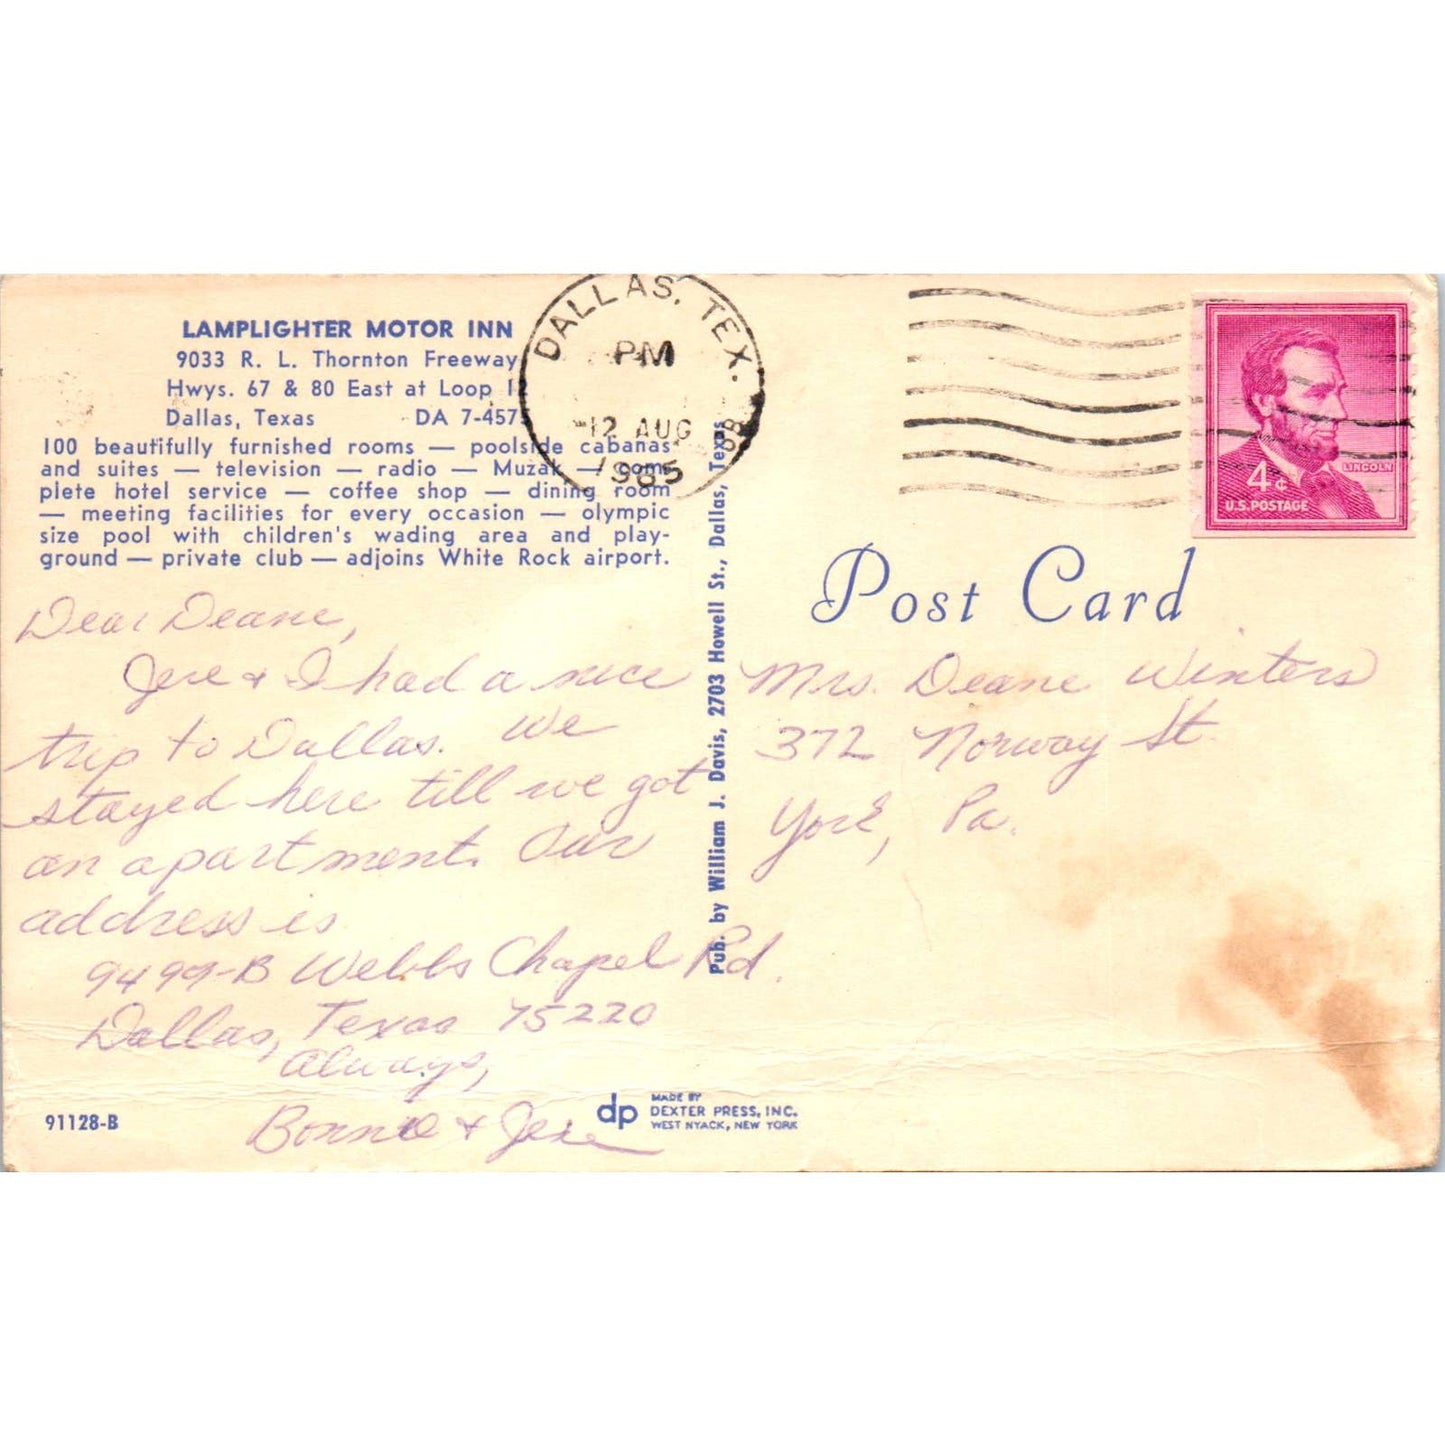 LAMPLIGHTER MOTOR INN
9033 R. L. Thornton Freeway
Hwys. 67 & 80 East at Loop 12
Dallas, Texas DA 7-4575
100 beautifully furnished rooms — poolside cabanas
and suites — television — radio — Muzak — com-
plete hotel service — coffee shop — dining room
— meeting facilities for every occasion — olympic
size pool with children's wading area and play-
ground — private club — adjoins White Rock airport.
Dear Deane,
Jere & I had a nice
trip to Dallas. We
stayed here till we got
an apartment. Our
address is
9499-B Webbs Chapel Rd.
Dallas, Texas 75220
Always,
Bonnie & Jere
91128-B
dp
MADE BY
DEXTER PRESS, INC.
WEST NYACK, NEW YORK
Pub. by William J. Davis, 2703 Howell St., Dallas, Texas
DALLAS, TEX.
PM
12 AUG
1965
4¢
LINCOLN
U.S. POSTAGE
Post Card
Mrs. Deane Winters
372 Norway St.
York, Pa.